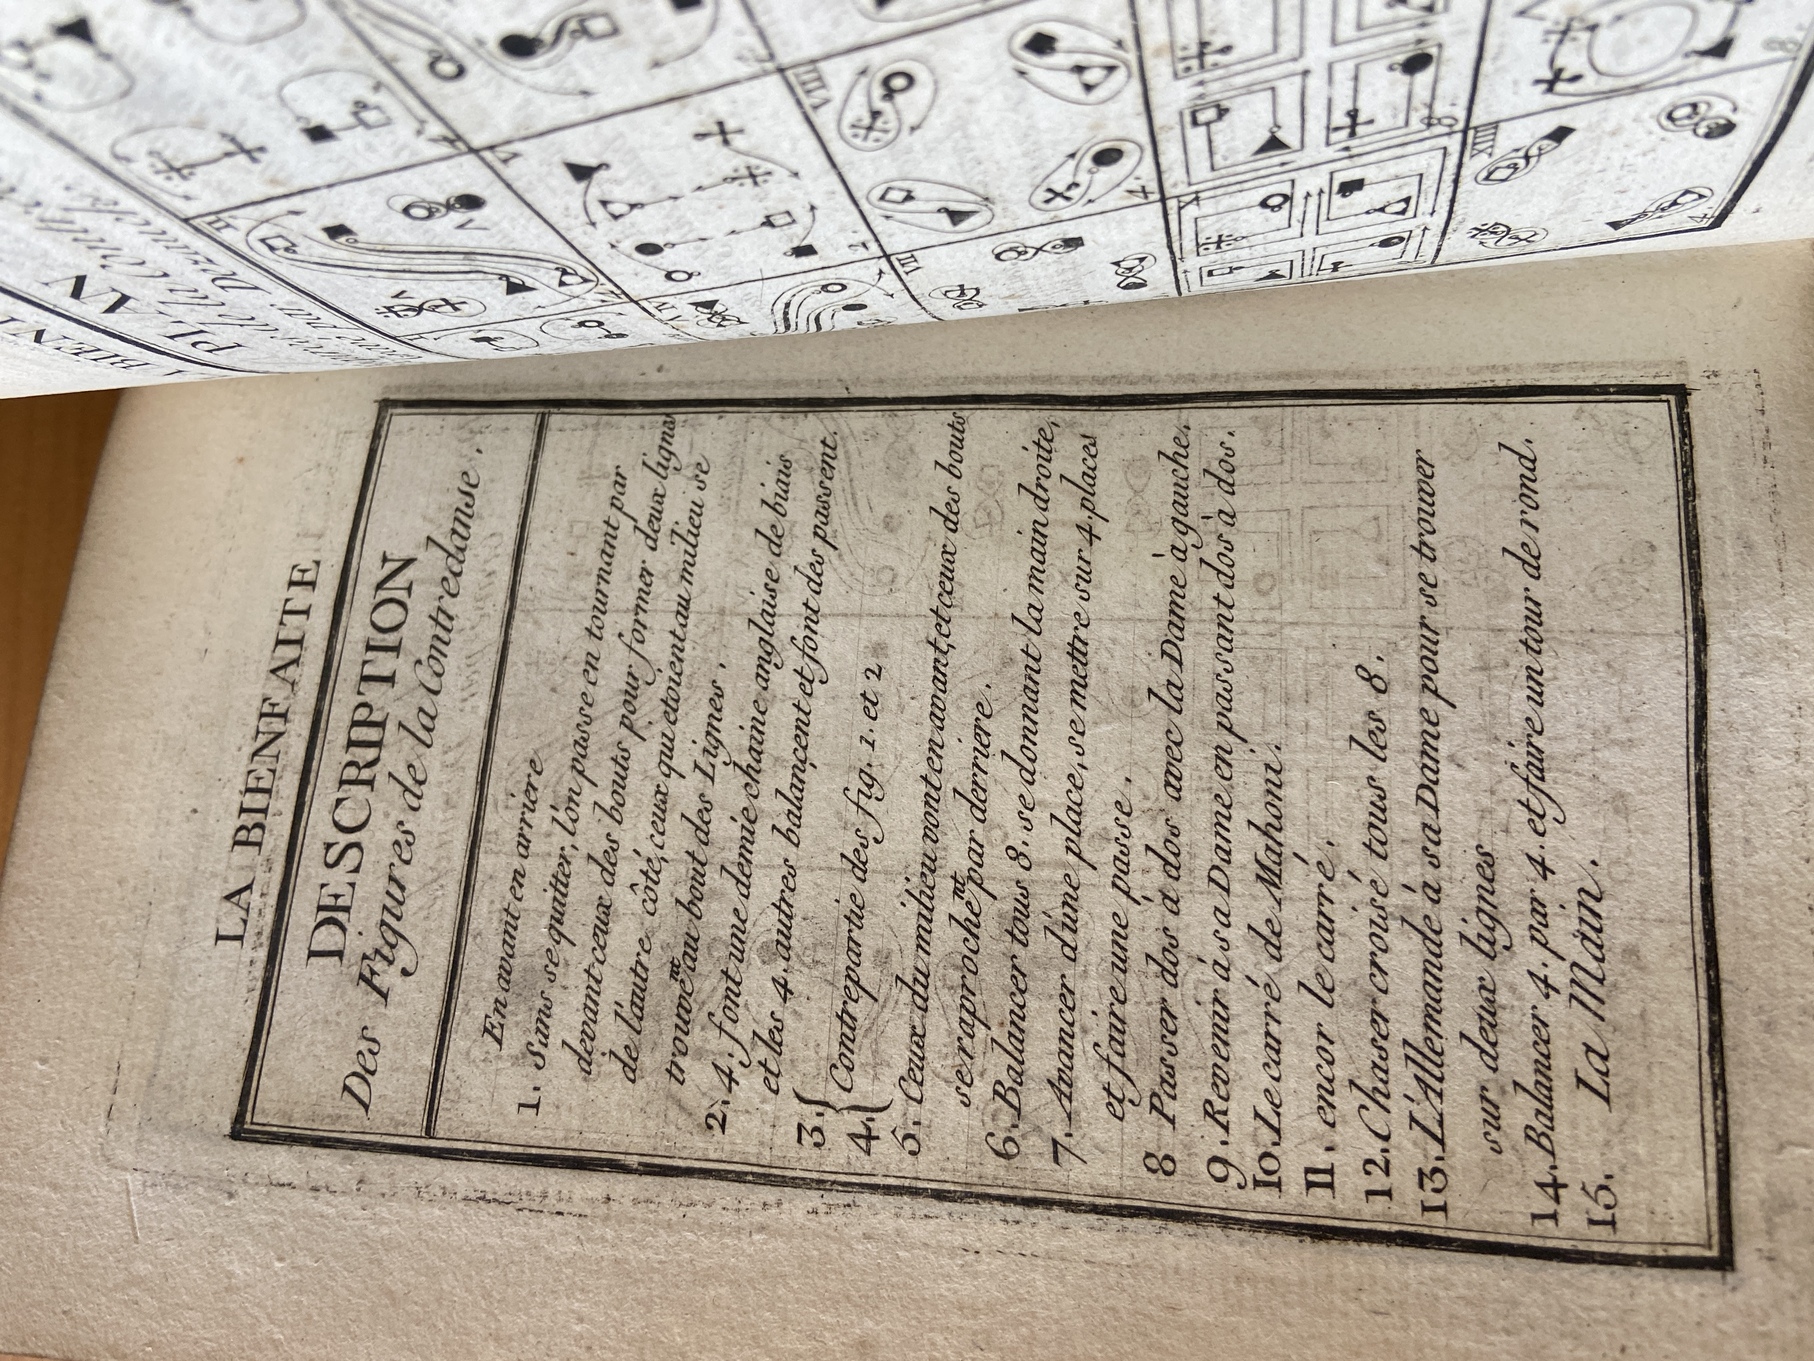 LA BIENFAITE
DESCRIPTION
Des Figures de la Contredanse.
En avant en arriere
1. Sans se quitter, l'on passe en tournant par
devant ceux des bouts pour former deux lignes
de l'autre côté, ceux qui etoient au milieu se
trouvent au bout des Lignes.
2. 4. font une demie chaine anglaise de biais
et les 4. autres balancent et font des passent.
3.{
4.{ Contrepartie des fig. 1. et 2
5. Ceux du milieu vont en avant, et ceux des bouts
se raprochent par derriere.
6. Balancer tous 8. se donnant la main droite,
7. Avancer d'une place, se mettre sur 4. places
et faire une passe.
8 Passer dos à dos avec la Dame à gauche.
9. Revenir à sa Dame en passant dos à dos.
10. Le carré de Mahoni.
11. encor le carré.
12. Chaser croisé tous les 8.
13. L'Allemande à sa Dame pour se trouver
sur deux lignes
14. Balancer 4. par 4. et faire un tour de rond.
15. La Main.
PLAN
II
V
IV
VIII
VII
X
XIII